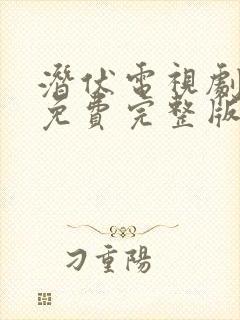 潛伏電視劇
免費完整版
刁重陽